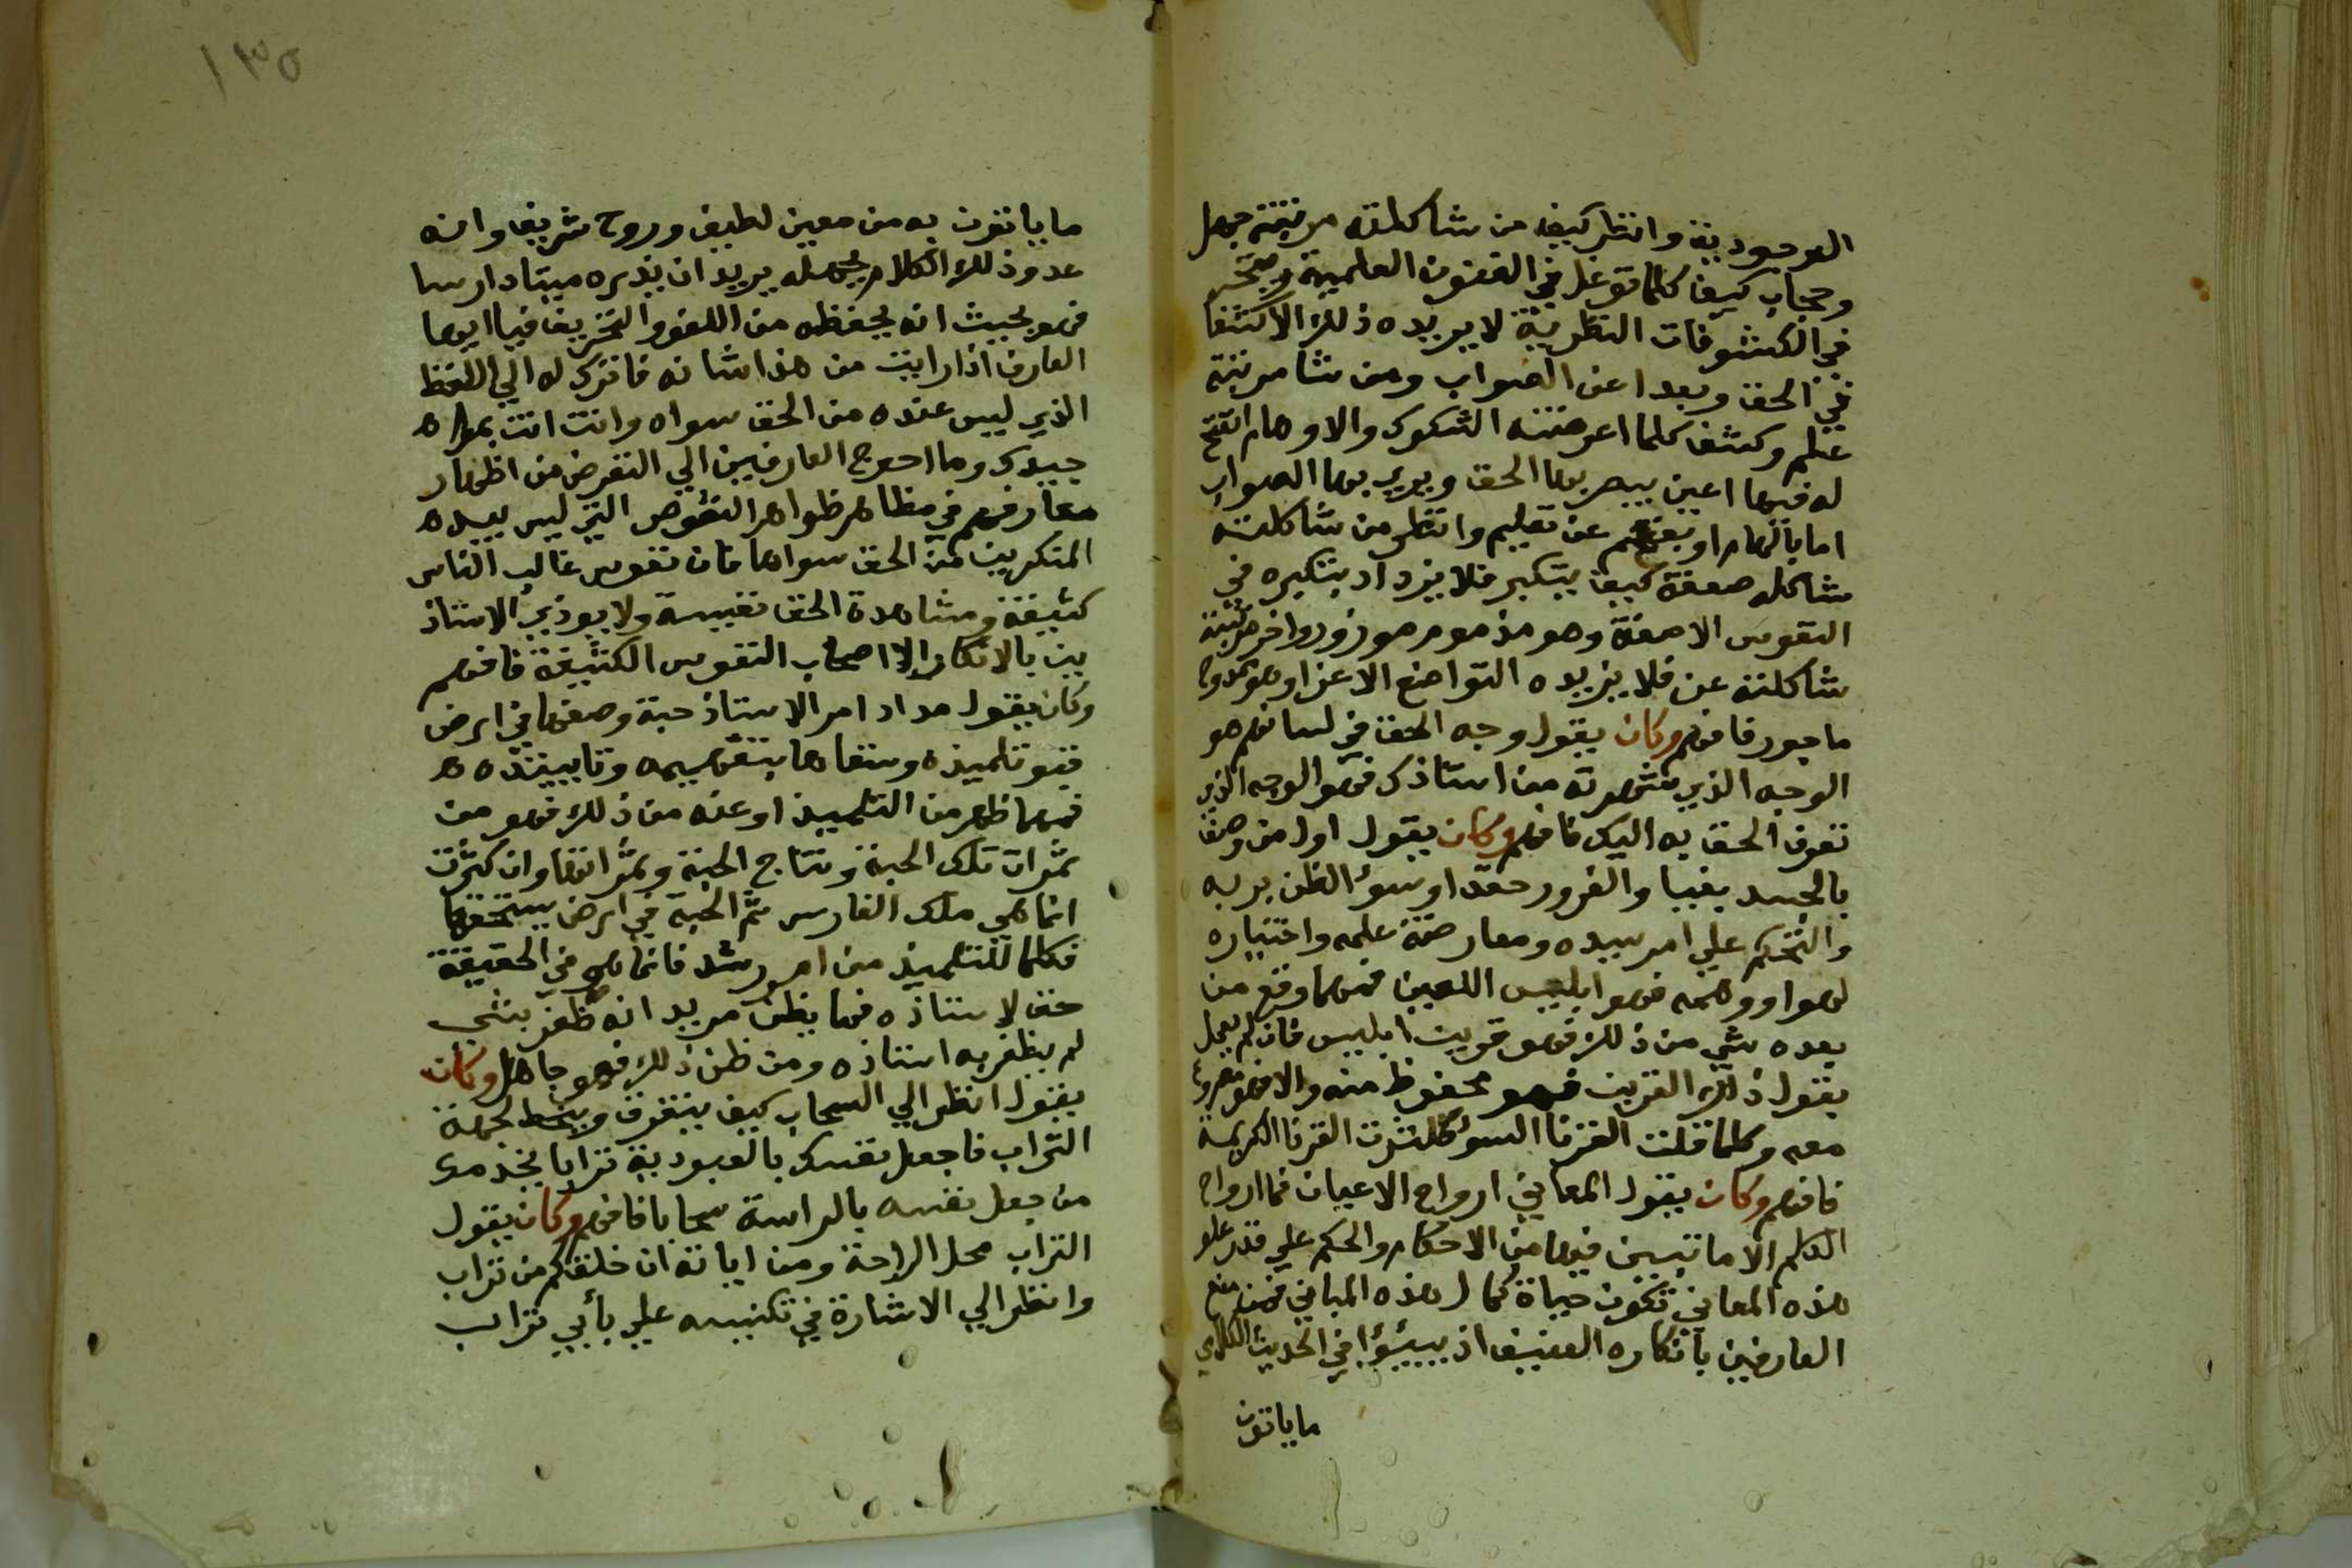 الوجودية وانظر كيف من شاكلته مرتبته جهل
وحجاب كيف كلما توغل في الفنون العلمية وتبحر
في الكشوفات النظرية لا يزيده ذلك الا كشفا
في الحق وبعدا عن الصواب ومن شا مرتبته
علم وكشف كلما اعرضته الشكوك والاوهام انفتح
له فيها اعين يبصر بها الحق ويري بها الصواب
اما بالهام او بفهم عن تعليم وانظر من شاكلته
شاكله صعفة كيف يتكبر فلا يزداد بتكبره في
النفوس الا صعفة وهو مذموم موزور واخر مرتبته
شاكلته عن فلا يزيده التواضع الا عزا وهو ممدوح
ماجور فافهم وكان يقول وجه الحق في لسانهم هو
الوجه الذي شهدته من استاذك فهو الوجه الذي
تعرف الحق به اليك فافهم وكان يقول اول من وصف
بالحسد بغيا والغرور حقدا وسؤ الظن بربه
والتحكم علي امر سيده ومعارضة علمه واختياره
لهوا ووهمه فهو ابليس اللعين فمهما وقع من
بعده شي من ذلك فهو قرين ابليس فان لم يعمل
بقول ذلك القرين فهو محفوظ منه والا فهو مقرون
معه وكلما قلت القرنا السؤ كثرت القرنا الكريمة
فافهم وكان يقول المعاني ارواح الاعيان فما ارواح
الكلم الا ما تبين فيها من الاحكام والحكم علي قدر علو
هذه المعاني تكون حياة كمال هذه المباني فمن منع
العارفين بانكاره العنيف اذ يبيئوا في الحديث الكلامي
ماياتون
١٣٥
ما ياتون به من معين لطيف وروح شريف وانه
عدو ذلك الكلام لجهله يريد ان يذره ميتا دارسا
فهو بحيث انه يحفظه من اللغو والتحريف فيا ايها
العارف اذا رايت من هذا شانه فاترك له الي اللفظ
الذي ليس عنده من الحق سواه وانت انت بمولاه
حييدك وما احوج العارفين الي التعرض من اظهار
معارفهم في مظاهر ظواهر النصوص التي ليس بيده
المنكرين من الحق سواها فان نفوس غالب الناس
كثيفة ومشاهدة الحق نفيسة ولا يوذي الاستاذ
ين بالانكار الا اصحاب النفوس الكثيفة فافهم
وكان يقول مداد امر الاستاذ حبة وضعها في ارض
قبو تلميذه وسقاها بتفهيمه وتاييده ه
فمهما ظهر من التلميذ او عنه من ذلك فهو من
ثمرات تلك الحبة ونتاج الحبة وثمراتها وان كثرت
انما هي ملك الغارس ثم الحبة في ارض يستحقها
فكلما للتلميذ من امور رشد فانما هي في الحقيقة
حق لاستاذه فما يظن مريد انه ظفر بشي
لم يظفر به استاذه ومن ظن ذلك فهو جاهل وكان
يقول انظر الي السحاب كيف يتفرق وينحط لجهة
التراب فاجعل نفسك بالعبودية ترابا يخدمك
من جعل نفسه بالراسة سحابا فافهم وكان يقول
التراب محل الراحة ومن اياته ان خلقكم من تراب
وانظر الي الاشارة في تكنيسه علي بأبي تراب